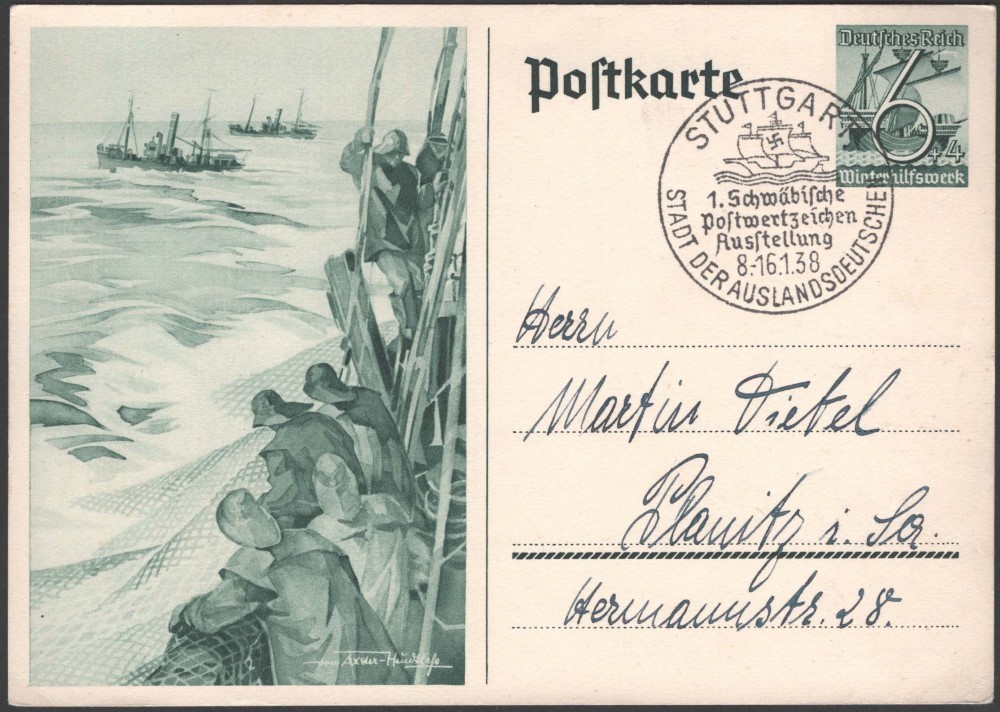 Postkarte
Deutsches Reich
6+4
Winterhilfswerk
STUTTGART
1. Schwäbische
Postwertzeichen
Ausstellung
8.-16.1.38
STADT DER AUSLANDSDEUTSCHEN
Herrn
Martin Dietel
Planitz i. Sa.
Hermannstr. 28.
von Axster-Heudtlaß